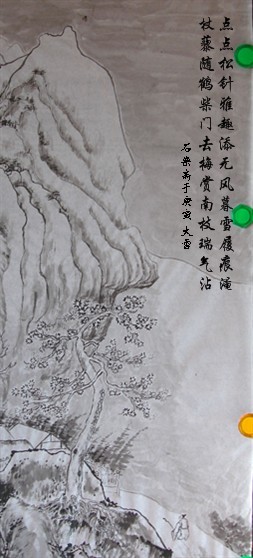 点点松针雅趣添无风暮雪履痕淹
杖藜随鹤柴门去梅赏南枝瑞气沾
石柴高于庚寅大雪